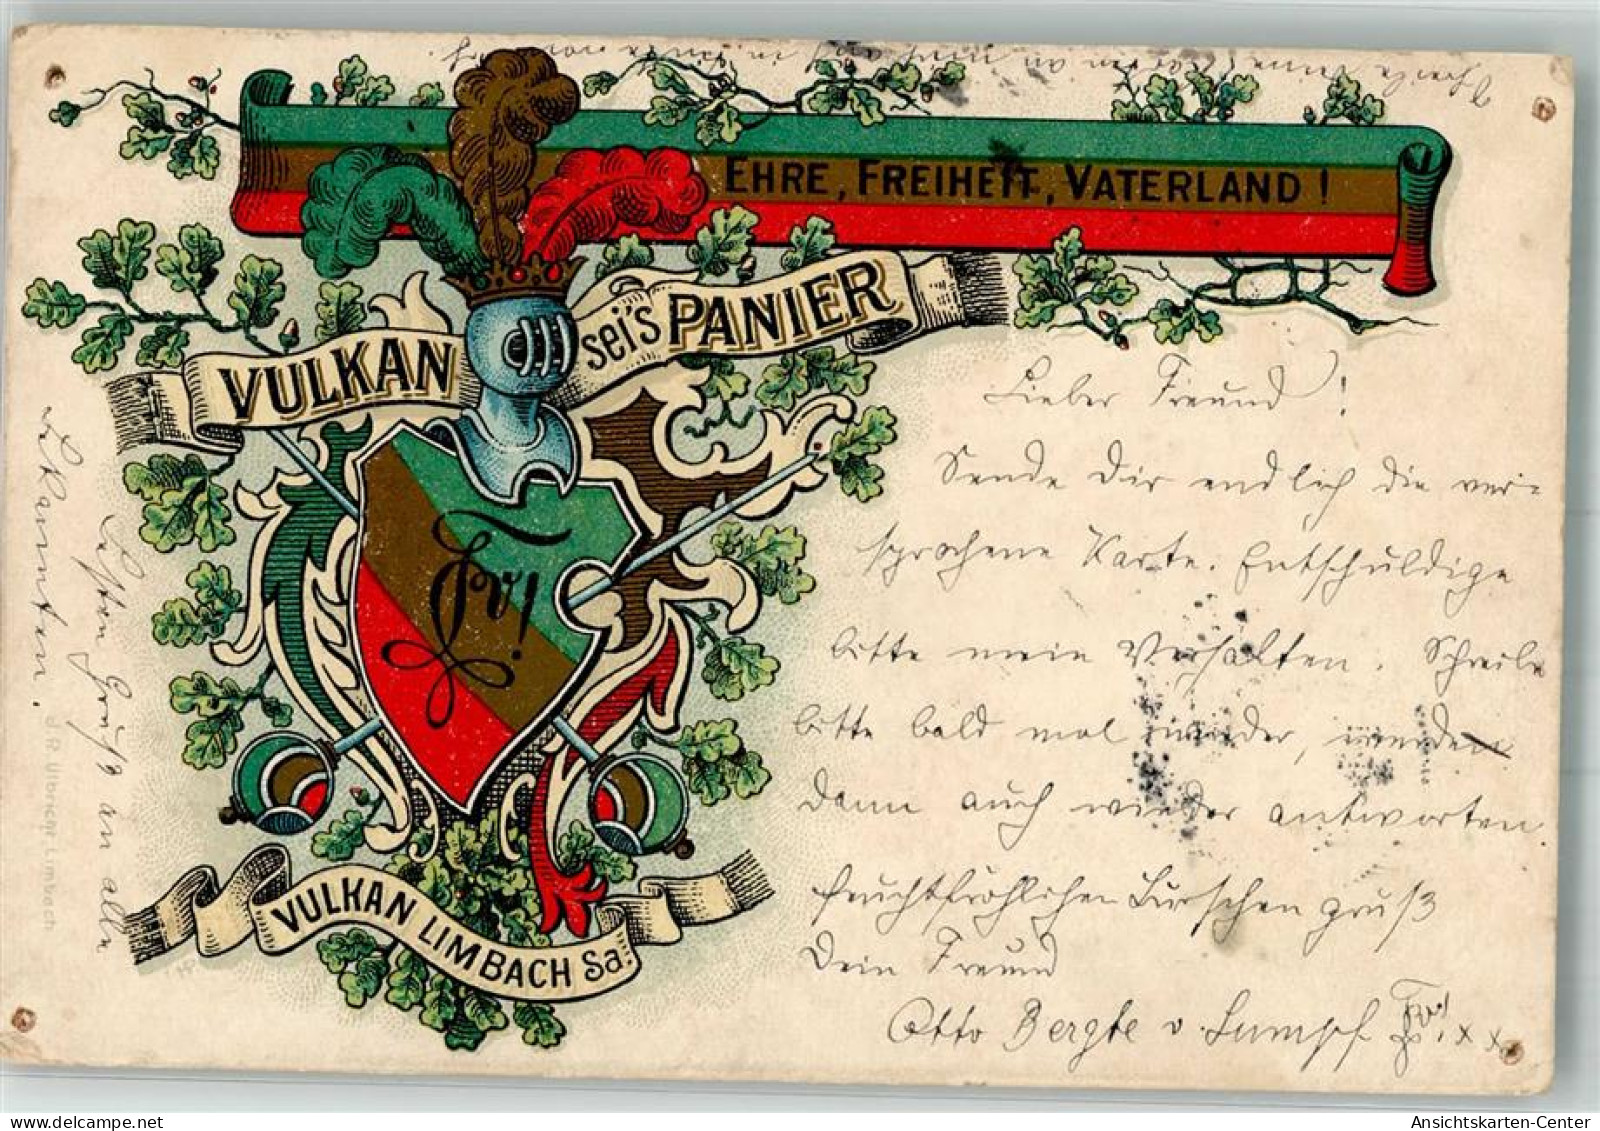 EHRE, FREIHEIT, VATERLAND!
VULKAN sei's PANIER
Lieber Freund!
Sende Dir endlich die ver=
sprochene Karte. Entschuldige
bitte mein Verhalten. Schreibe
bitte bald mal wieder, werde
dann auch wieder antworten.
feuchtfröhlichen Burschengruß
Dein Freund
Otto Bergte v. Sumpf xx
VULKAN LIMBACH Sa.
Besten Gruß an alle
Bekannten.
J.R. Ulbricht Limbach
Ansichtskarten-Center